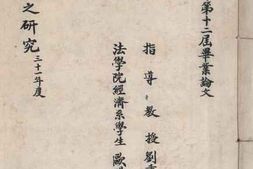 第十二屆畢業論文
指導教授劉
法學院經濟系學生歐
之研究三十一年度